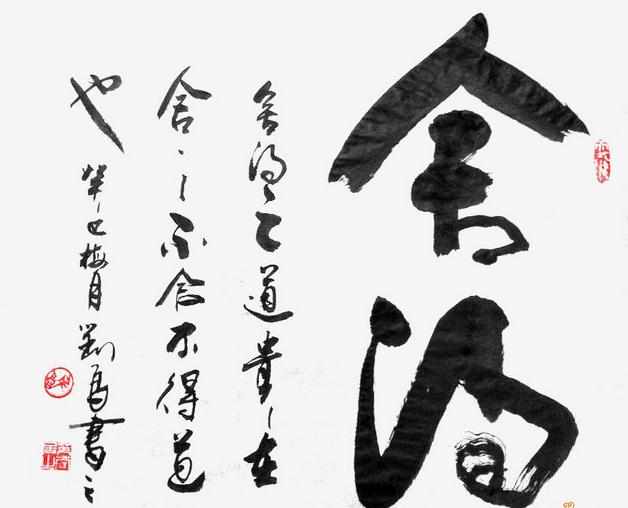 舍得
舍得之道貴在
舍不舍不得道
也 癸巳梅月劉書之